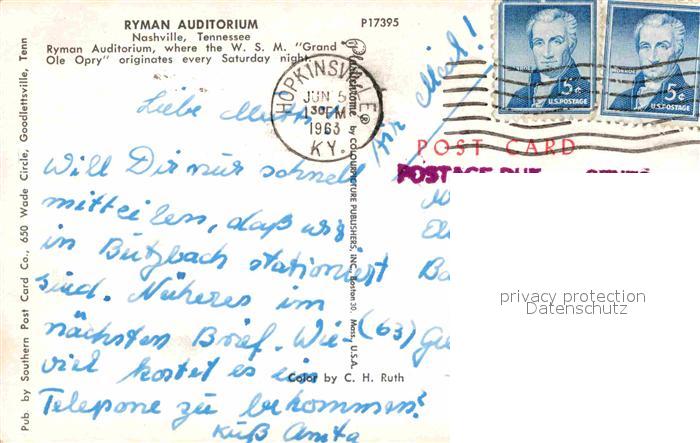 RYMAN AUDITORIUM
Nashville, Tennessee
P17395
Ryman Auditorium, where the W. S. M. "Grand
Ole Opry" originates every Saturday night.
Pub. by Southern Post Card Co., 650 Wade Circle, Goodlettsville, Tenn
Plastichrome ® by COLOURPICTURE PUBLISHERS, INC., Boston 30, Mass., U.S.A.
HOPKINSVILLE
JUN 5
130PM
1963
KY.
Air Mail!
5¢
U.S. POSTAGE
5¢
U.S. POSTAGE
POST CARD
POSTAGE DUE
Liebe
Will Dir nur schnell
mitteilen, daß wir
in Butzbach stationiert
sind. Näheres im
nächsten Brief. Wie-
viel kostet es ein
Telepone zu bekommen?
Kuß Anita
(63)
Color by C. H. Ruth
privacy protection
Datenschutz